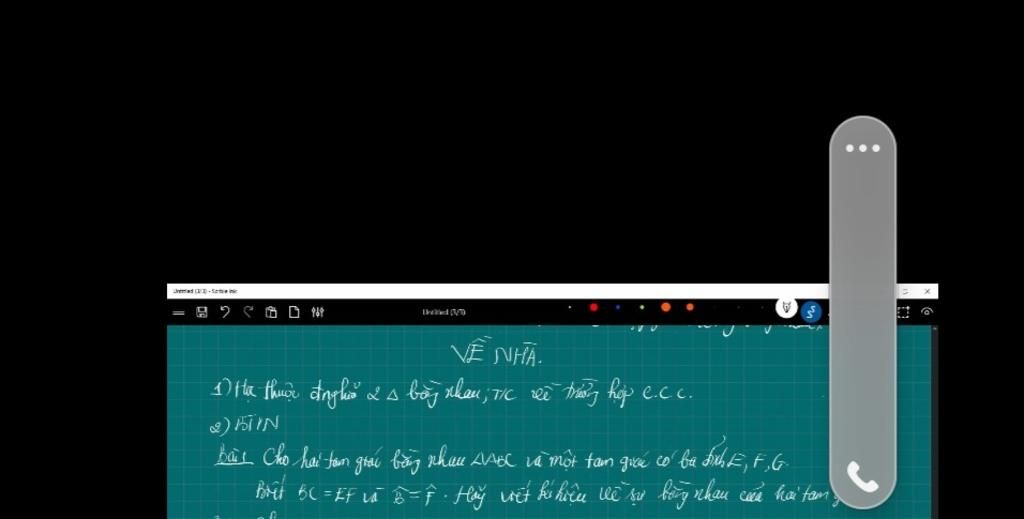 Untitled (3/3) - Scrble Ink
Untitled (3/3)
VỀ NHÀ.
1) Học thuộc đ/nghĩa 2 △ bằng nhau; T/C về trường hợp c.c.c.
2) BTVN
Bài 1 Cho hai tam giác bằng nhau △ABC và một tam giác có ba đỉnh E, F, G.
Biết BC = EF và B̂ = F̂. Hãy viết kí hiệu về sự bằng nhau của hai tam g